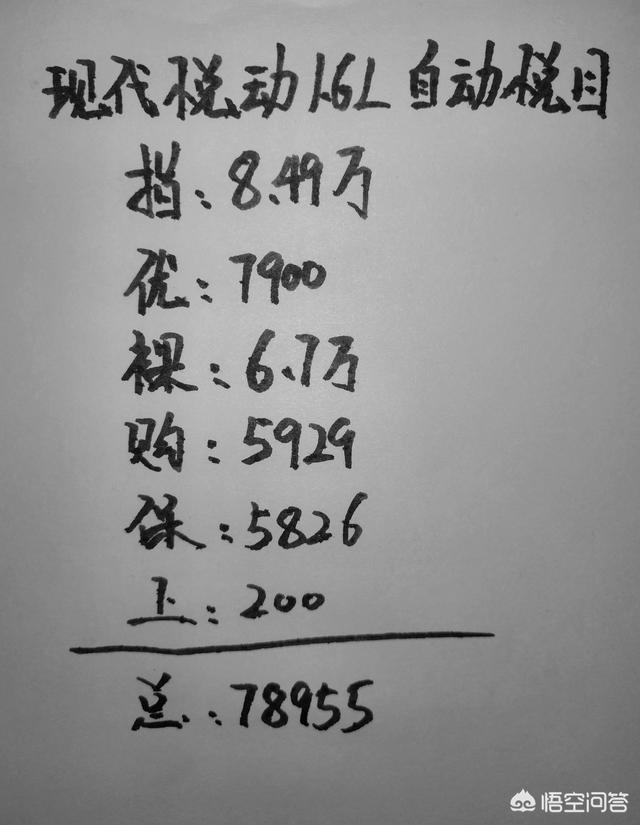 现代悦动1.6L自动悦目
指:8.49万
优:7900
裸:6.7万
购:5929
保:5826
上:200
总:78955
悟空问答